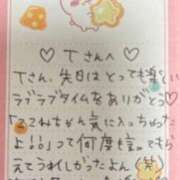 ♡ Tさんへ ♡
Tさん、先日はとっても楽しい
ラブラブタイムをありがとう♡
「ここねちゃん気に入っちゃった
よ!!」って何度も言ってもら
えてうれしかったよん(笑)